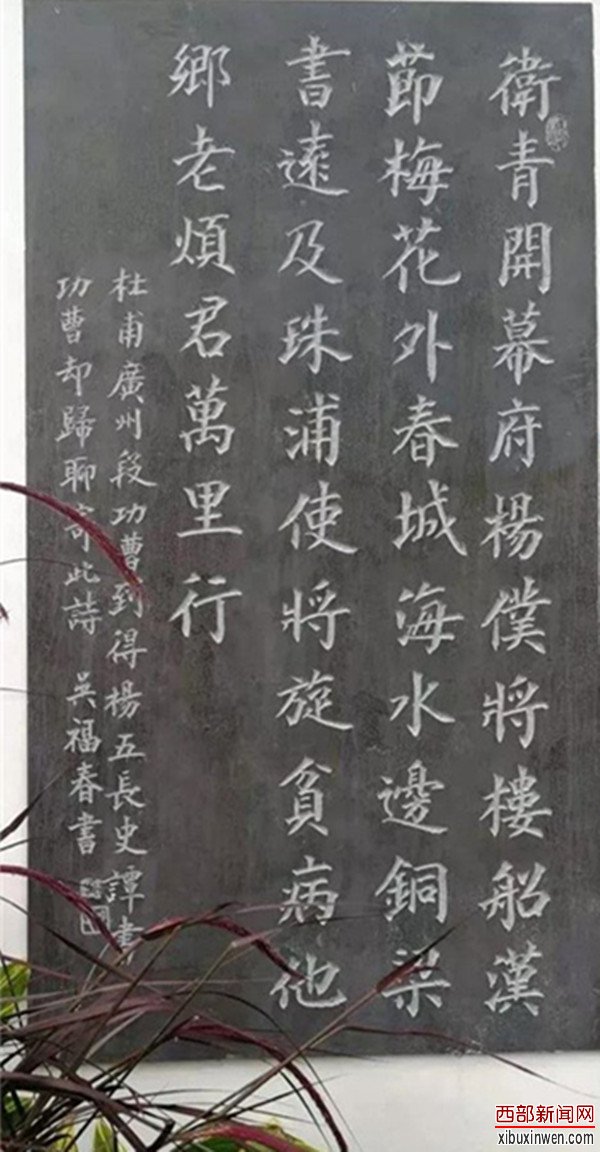 衛青開幕府楊僕將樓船漢
節梅花外春城海水邊銅梁
書遠及珠浦使將旋貧病他
鄉老煩君萬里行
杜甫廣州段功曹到得楊五長史譚書
功曹却歸聊寄此詩 吴福春書
西部新闻网
xibuxinwen.com